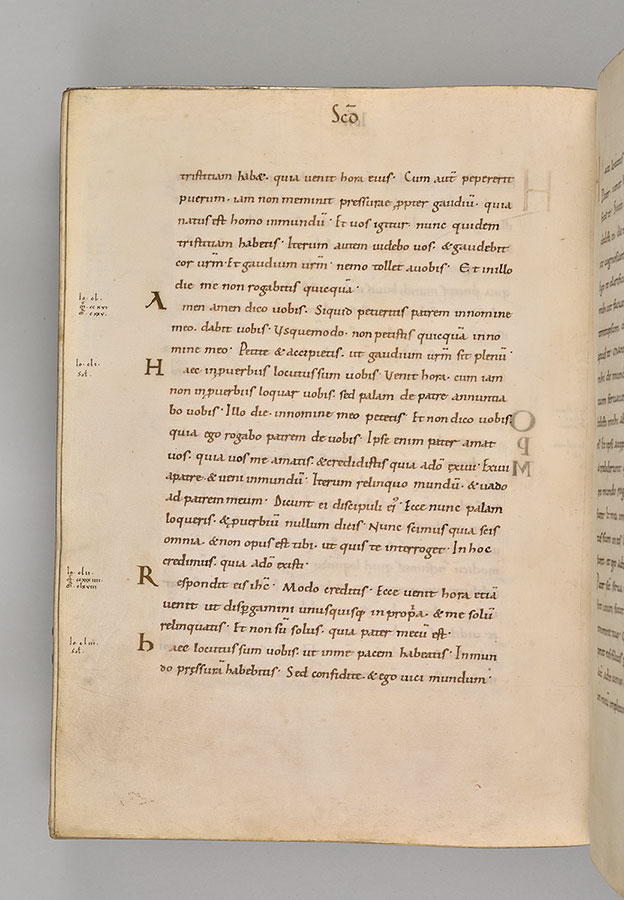 Scd̄
tristitiam habæ. quia venit hora eius. Cum aut̄ pepererit
puerum. iam non meminit pressurae ꝓpter gaudiū. quia
natus est homo inmundū. Et vos igitur nunc quidem
tristitiam habetis. Iterum autem videbo vos. & gaudebit
cor vr̄m. Et gaudium vr̄m nemo tollet avobis. Et inillo
die me non rogabitis quicquā.
Amen amen dico vobis. Siquid petieritis patrem innomine
meo. dabit vobis. Usquemodo. non petistis quicquā inno
mine meo. Petite & accipietis. ut gaudium vr̄m sit plenū.
Haec inꝓverbiis locutussum vobis. Venit hora. cum iam
non inꝓverbiis loquar vobis. sed palam de patre annuntia
bo vobis. Illo die. innomine meo petetis. Et non dico vobis.
quia ego rogabo patrem de vobis. Ipse enim pater amat
vos. quia vos me amatis. & credidistis quia adō exivi. Exivi
apatre. & veni inmundū. Iterum relinquo mundū. & vado
ad patrem meum. Dicunt ei discipuli ei'. Ecce nunc palam
loqueris. & ꝓverbiū nullum dicis. Nunc scimus quia scis
omnia. & non opus est tibi. ut quis te interroget. In hoc
credimus. quia adō existi.
Respondit eis ihc̄. Modo creditis. Ecce venit hora etiā
venit ut dispgamini unusquisq; inpropͣa. & me solū
relinquatis. Et non sū solus. quia pater mecū est.
haec locutussum vobis. ut inme pacem habeatis. Inmun
do pressurā habebitis. Sed confidite. & ego vici mundum.